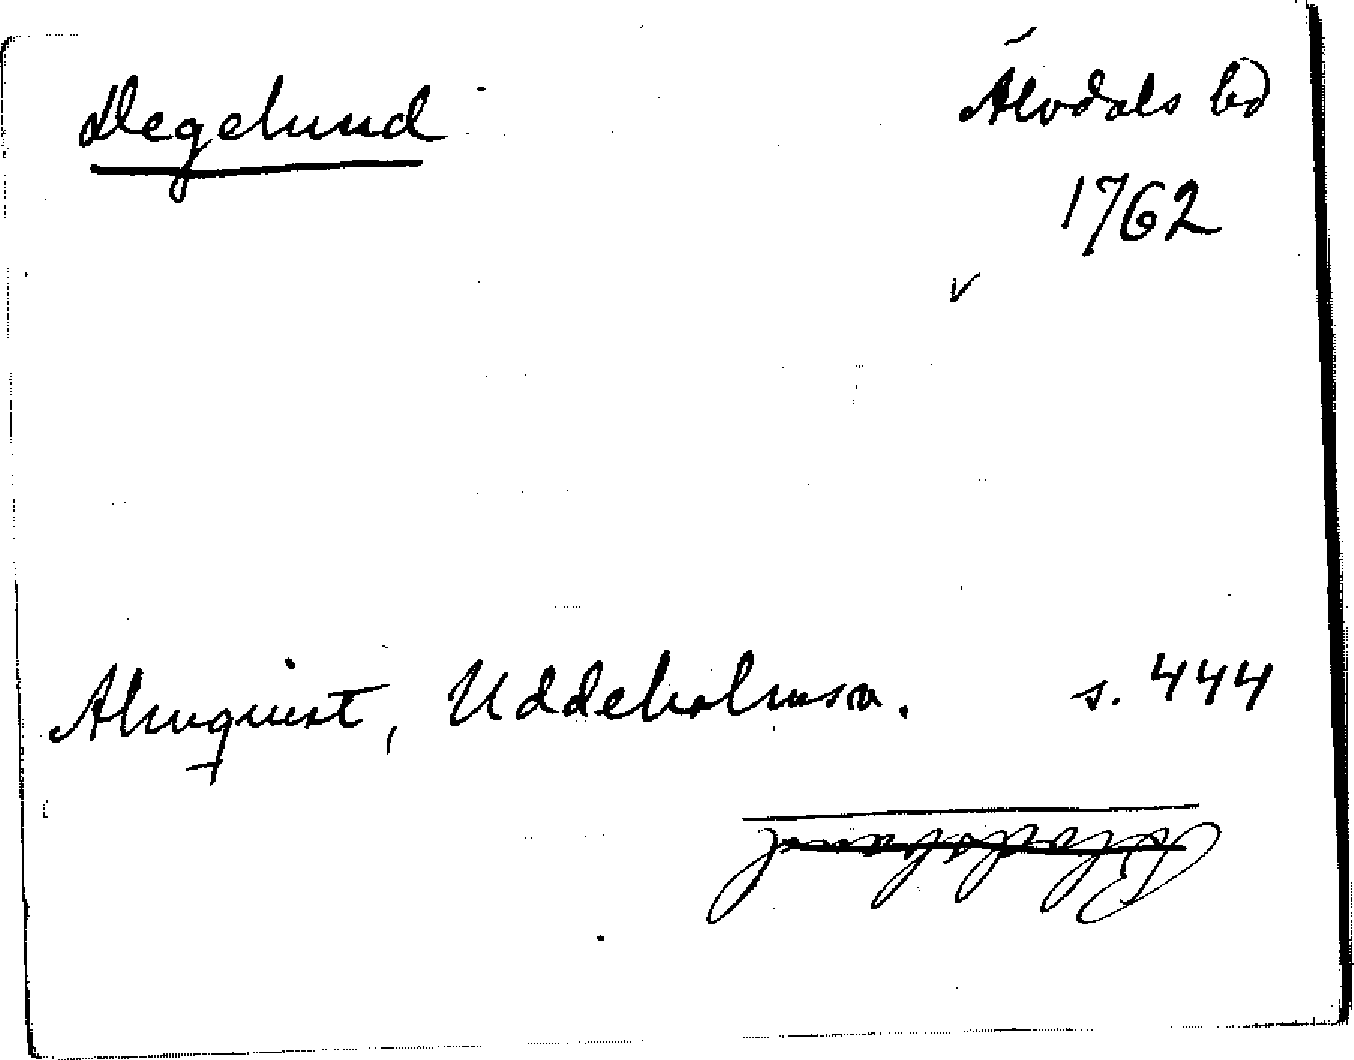 Degelund
Älvdals bd
1762
Almquist, Uddeholmsv. s. 444